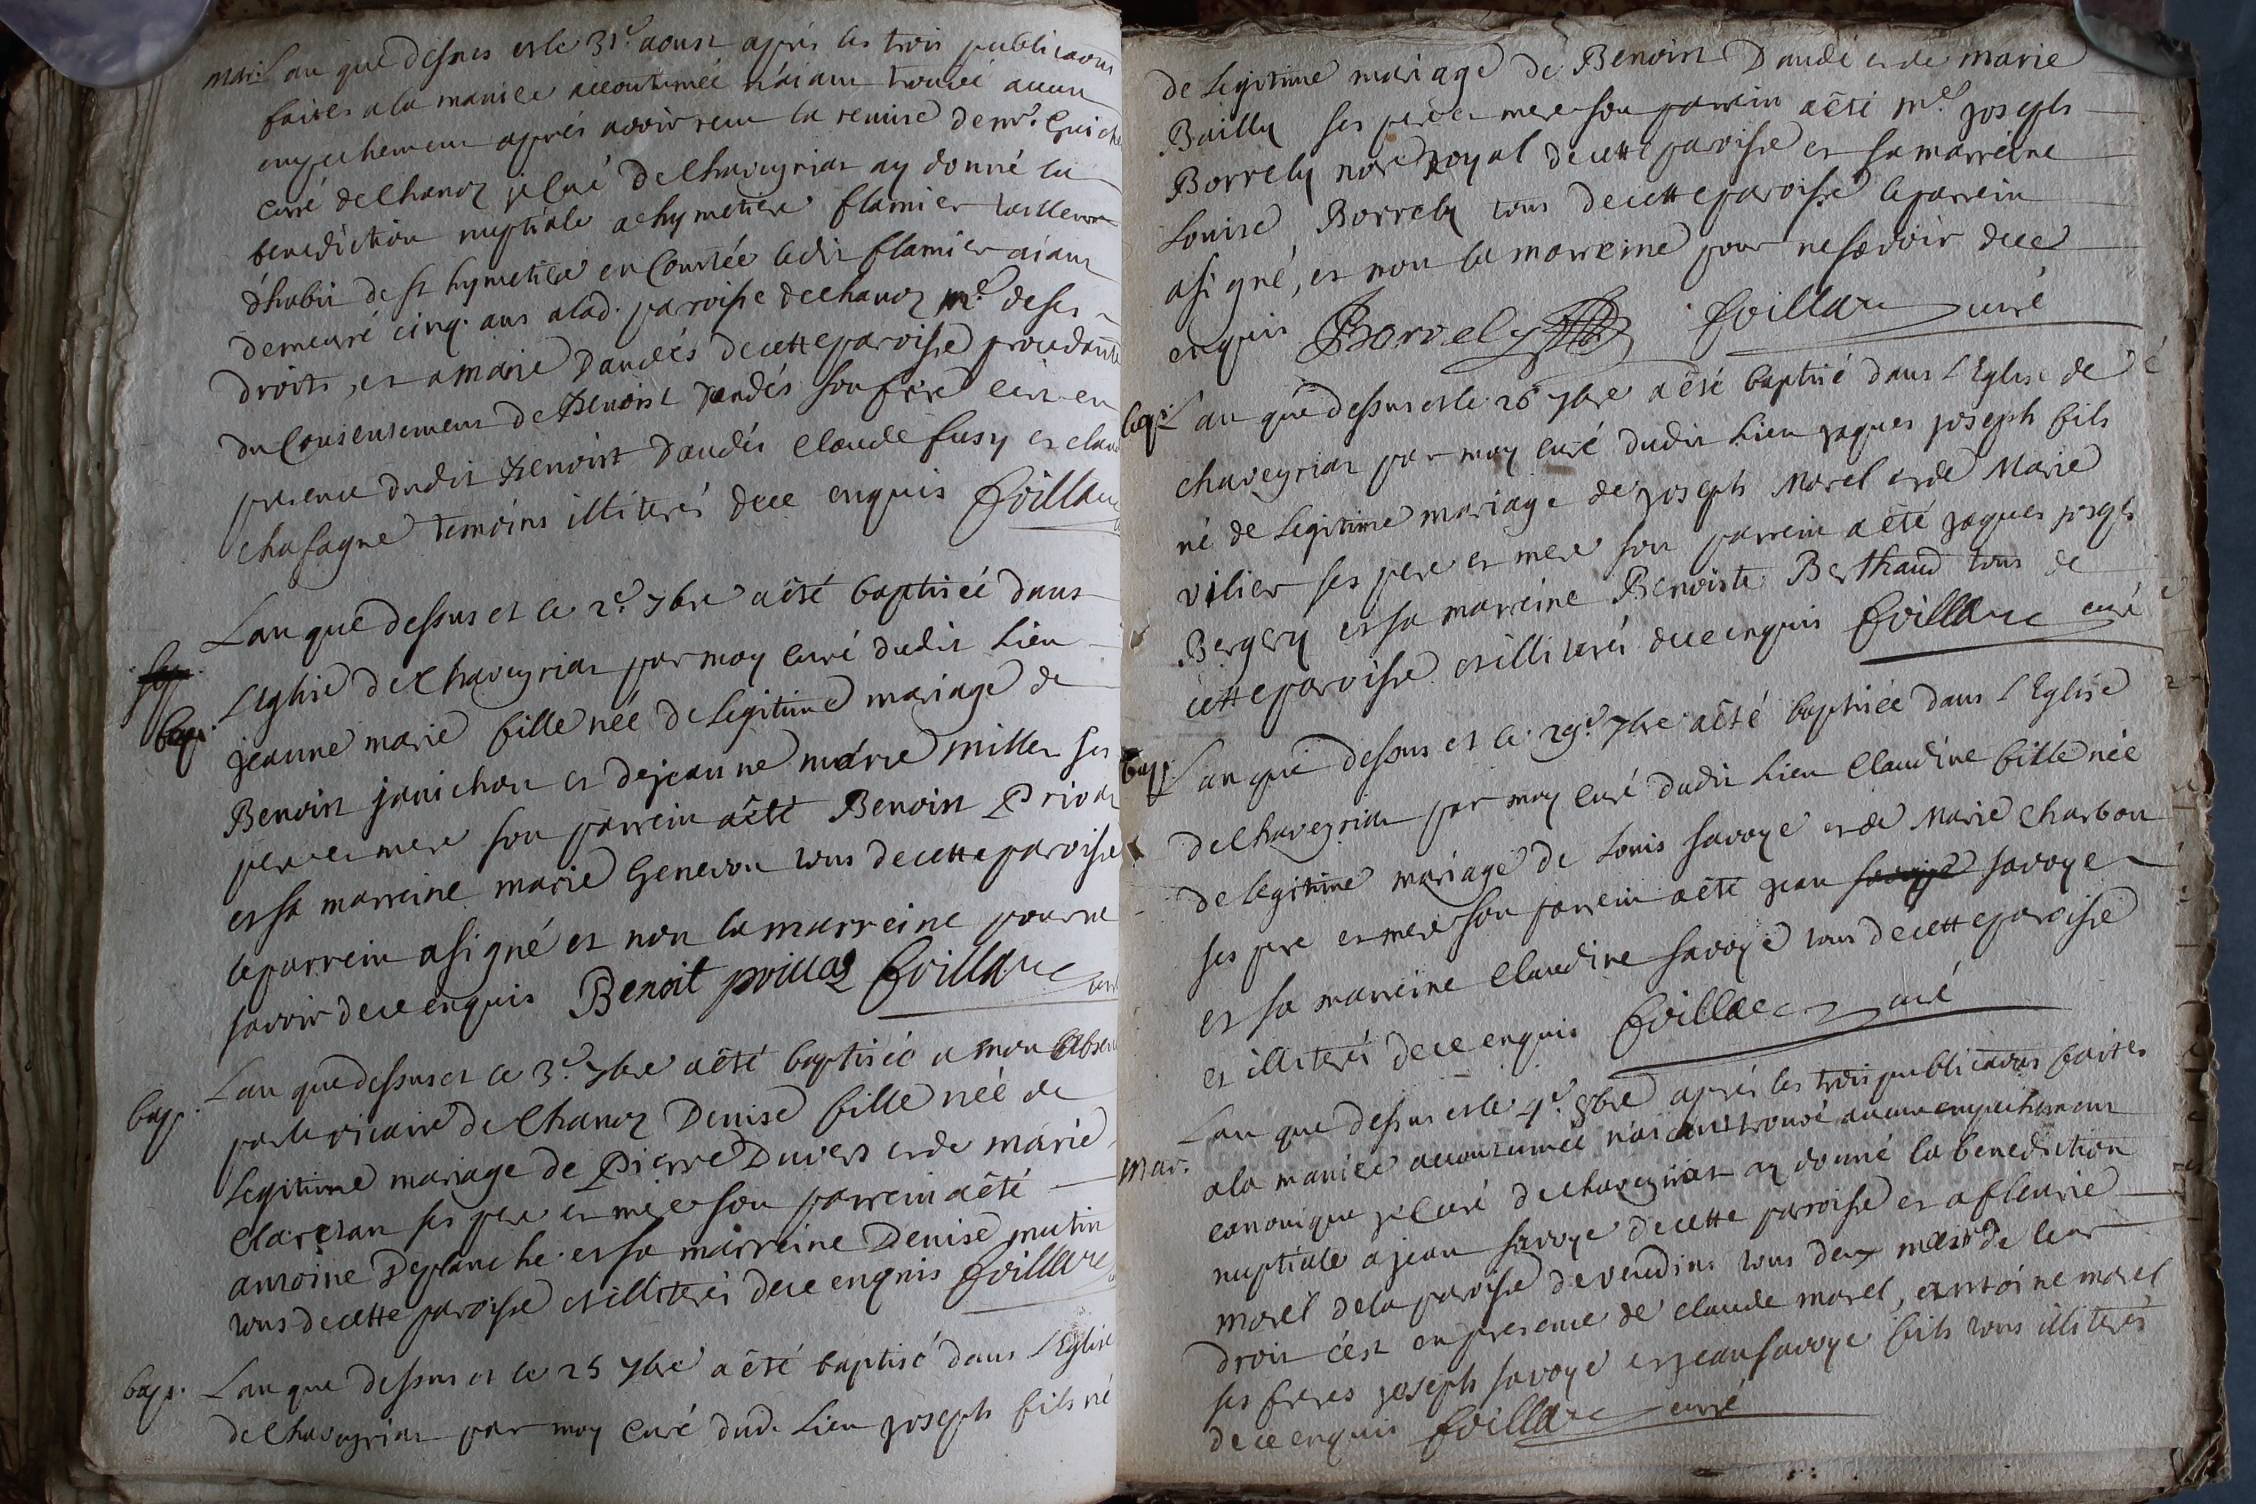 mar. L'an que dessus et le 31e aoust aprés les trois publicaons
faites a la maniere accoutumée n'aiant trouvé aucun
empechement aprés avoir receu la remise de mr. Guiche
curé de Chanoz je curé de Chaveyriat ay donné la
benediction nuptiale a hymetiere flamier tailleur
d'habit de st hymetiere en Comtée ledit flamier aiant
demeuré cinq ans a lad. paroisse de Chanoz me de ses
droits, et a marie Dandés de cette paroisse procedante
du Consentement de Benoist Dandés son frere c'est en
presence dudit Benoist Dandés Claude fusy et claude
chasagne temoins illiterés de ce enquis foillar
L'an que dessus et le 2e 7bre a êté baptisée dans
bap. L'Eglise de Chaveyriat par moy curé dudit Lieu
jeanne marie fille née de Legitime mariage de
Benoist janichon et de jeanne marie millet ses
pere et mere son parrein a êté Benoist Privat
et sa marreine marie Genevon tous de cette paroisse
le parrein a signé et non la marreine pour ne
savoir de ce enquis Benoit foillar curé
bap. L'an que dessus et le 3e 7bre a êté baptisée a mon absence
par le vicaire de Chanoz Denise fille née de
Legitime mariage de Pierre Duvers et de marie
ses pere et mere son parrein a êté
antoine Deplanche et sa marreine Denise mutin
tous de cette paroisse et illiterés de ce enquis foillar
bap. L'an que dessus et le 25 7bre a êté baptisé dans l'Eglise
de Chaveyriat par moy Curé dud. Lieu joseph fils né
de Legitime mariage de Benoist Dandé et de marie
Bailly ses pere et mere son parrein a êté me. joseph
Borrely nore royal de cette paroisse et sa marreine
Louise Borrely tous de cette paroisse le parrein
a signé, et non la marreine pour ne savoir de ce
enquis Borrely foillar curé
bap. L'an que dessus et le 26 7bre a êté baptisé dans l'Eglise de
chaveyriat par moy curé dudit Lieu jaques joseph fils
né de Legitime mariage de joseph Morel et de Marie
vilier ses pere et mere son parrein a êté jaques joseph
Bergery et sa marreine Benoiste Berthaud tous de
cette paroisse et illiterés de ce enquis foillar curé
bap. L'an que dessus et le 29e 7bre a êté baptisée dans l'Eglise
de Chaveyriat par moy curé dudit Lieu Claudine fille née
de legitime mariage de Louis savoye et de Marie Charbon
ses pere et mere son parrein a êté jean savoye
et sa marreine Claudine savoye tous de cette paroisse
et illiterés de ce enquis foillar curé
L'an que dessus et le 4e 8bre aprés les trois publicaons faites
mar. a la maniere accoutumée n'aiant trouvé aucun empechement
canonique je Curé de chaveyriat ay donné la benediction
nuptiale a jean savoye de cette paroisse et a fleurie
morel de la paroisse de vendins tous deux me de leur
droit c'est en presence de claude morel, antoine morel
ses freres joseph savoye et jean savoye fils tous illiterés
de ce enquis foillar curé